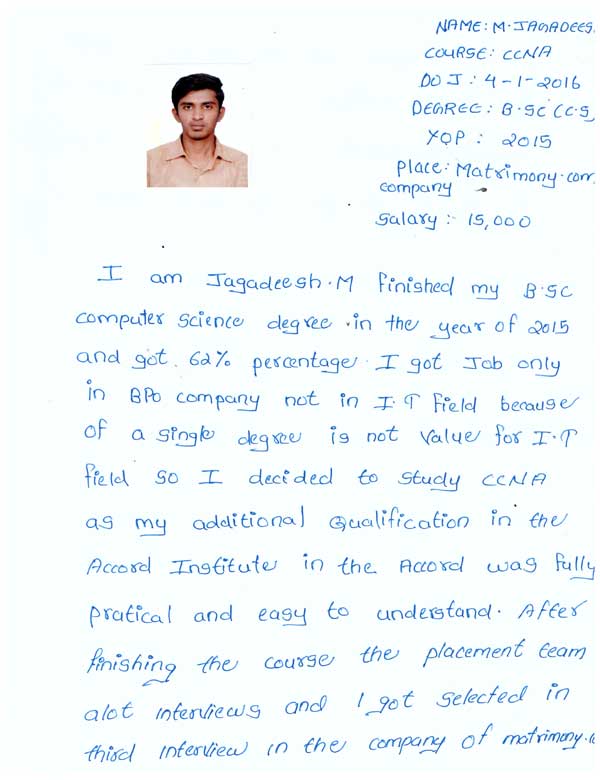 NAME: M.JAGADEES
COURSE: CCNA
DOJ: 4-1-2016
DEGREE: B.SC (C.S,
YOP: 2015
Place: Matrimony.com
company
Salary:- 15,000
I am Jagadeesh.M finished my B.SC
computer science degree in the year of 2015
and got 62% percentage. I got Job only
in BPO company not in I.T field because
of a single degree is not value for I.T
field so I decided to study CCNA
as my additional Qualification in the
Accord Institute in the Accord was fully
pratical and easy to understand. After
finishing the course the placement team
alot interviews and I got selected in
third interview in the company of matrimony.c